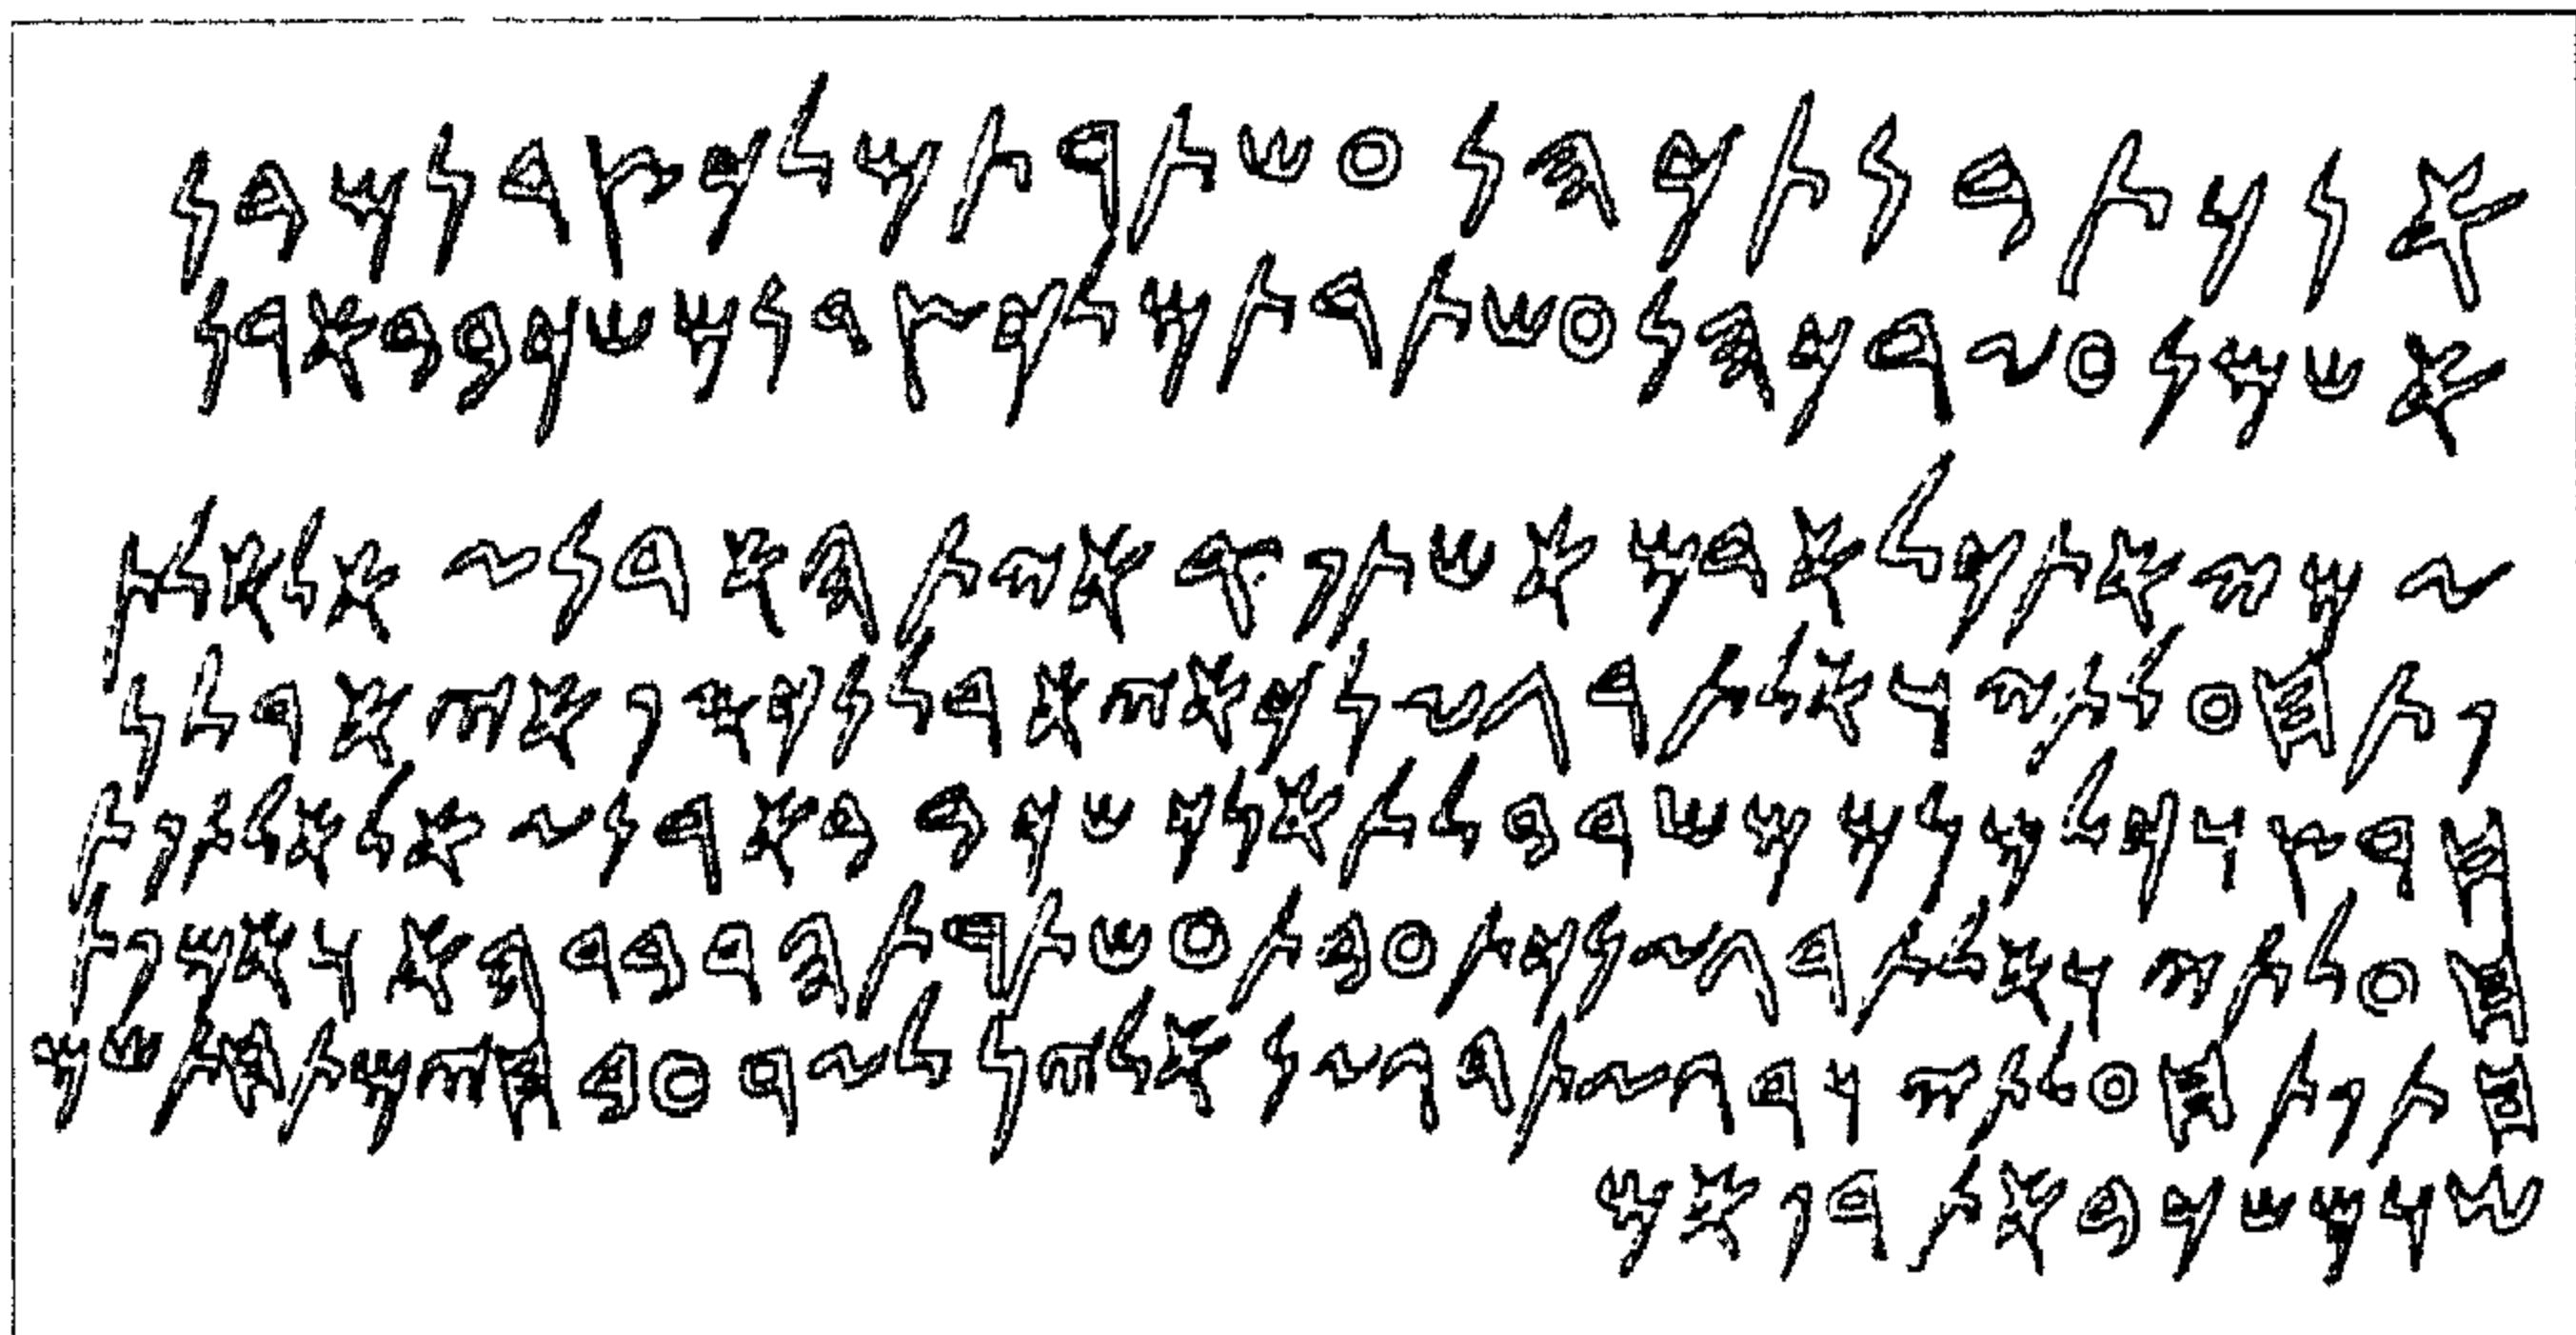 𐤀𐤍𐤊𐤕𐤁𐤍𐤕𐤊𐤄𐤍𐤏𐤔𐤕𐤓𐤕𐤌𐤋𐤊𐤑𐤃𐤍𐤌𐤁𐤍
𐤀𐤔𐤌𐤍𐤏𐤆𐤓𐤊𐤄𐤍𐤏𐤔𐤕𐤓𐤕𐤌𐤋𐤊𐤑𐤃𐤍𐤌𐤔𐤊𐤁𐤁𐤀𐤓𐤍
𐤆𐤌𐤉𐤀𐤕𐤊𐤋𐤀𐤃𐤌𐤀𐤔𐤕𐤐𐤒𐤀𐤉𐤕𐤄𐤀𐤓𐤍𐤆𐤀𐤋𐤀𐤋𐤕
𐤐𐤕𐤇𐤏𐤋𐤕𐤉𐤅𐤀𐤋𐤕𐤓𐤂𐤆𐤍𐤊𐤀𐤉𐤀𐤃𐤋𐤍𐤊𐤎𐤐𐤀𐤉𐤀𐤃𐤋𐤍
𐤇𐤓𐤑𐤅𐤊𐤋𐤌𐤍𐤌𐤌𐤔𐤃𐤁𐤋𐤕𐤀𐤍𐤊𐤔𐤊𐤁𐤁𐤀𐤓𐤍𐤆𐤀𐤋𐤀𐤋𐤕𐤐𐤕
𐤇𐤏𐤋𐤕𐤉𐤅𐤀𐤋𐤕𐤓𐤂𐤆𐤍𐤊𐤕𐤏𐤁𐤕𐤏𐤔𐤕𐤓𐤕𐤄𐤃𐤁𐤓𐤄𐤀𐤅𐤀𐤌𐤐𐤕
𐤇𐤕𐤐𐤕𐤇𐤏𐤋𐤕𐤉𐤅𐤓𐤂𐤆𐤕𐤓𐤂𐤆𐤍𐤀𐤋𐤉𐤍𐤋𐤆𐤓𐤏𐤁𐤇𐤉𐤌𐤕𐤇𐤕𐤔𐤌
𐤔𐤅𐤌𐤔𐤊𐤁𐤀𐤕𐤓𐤐𐤀𐤌